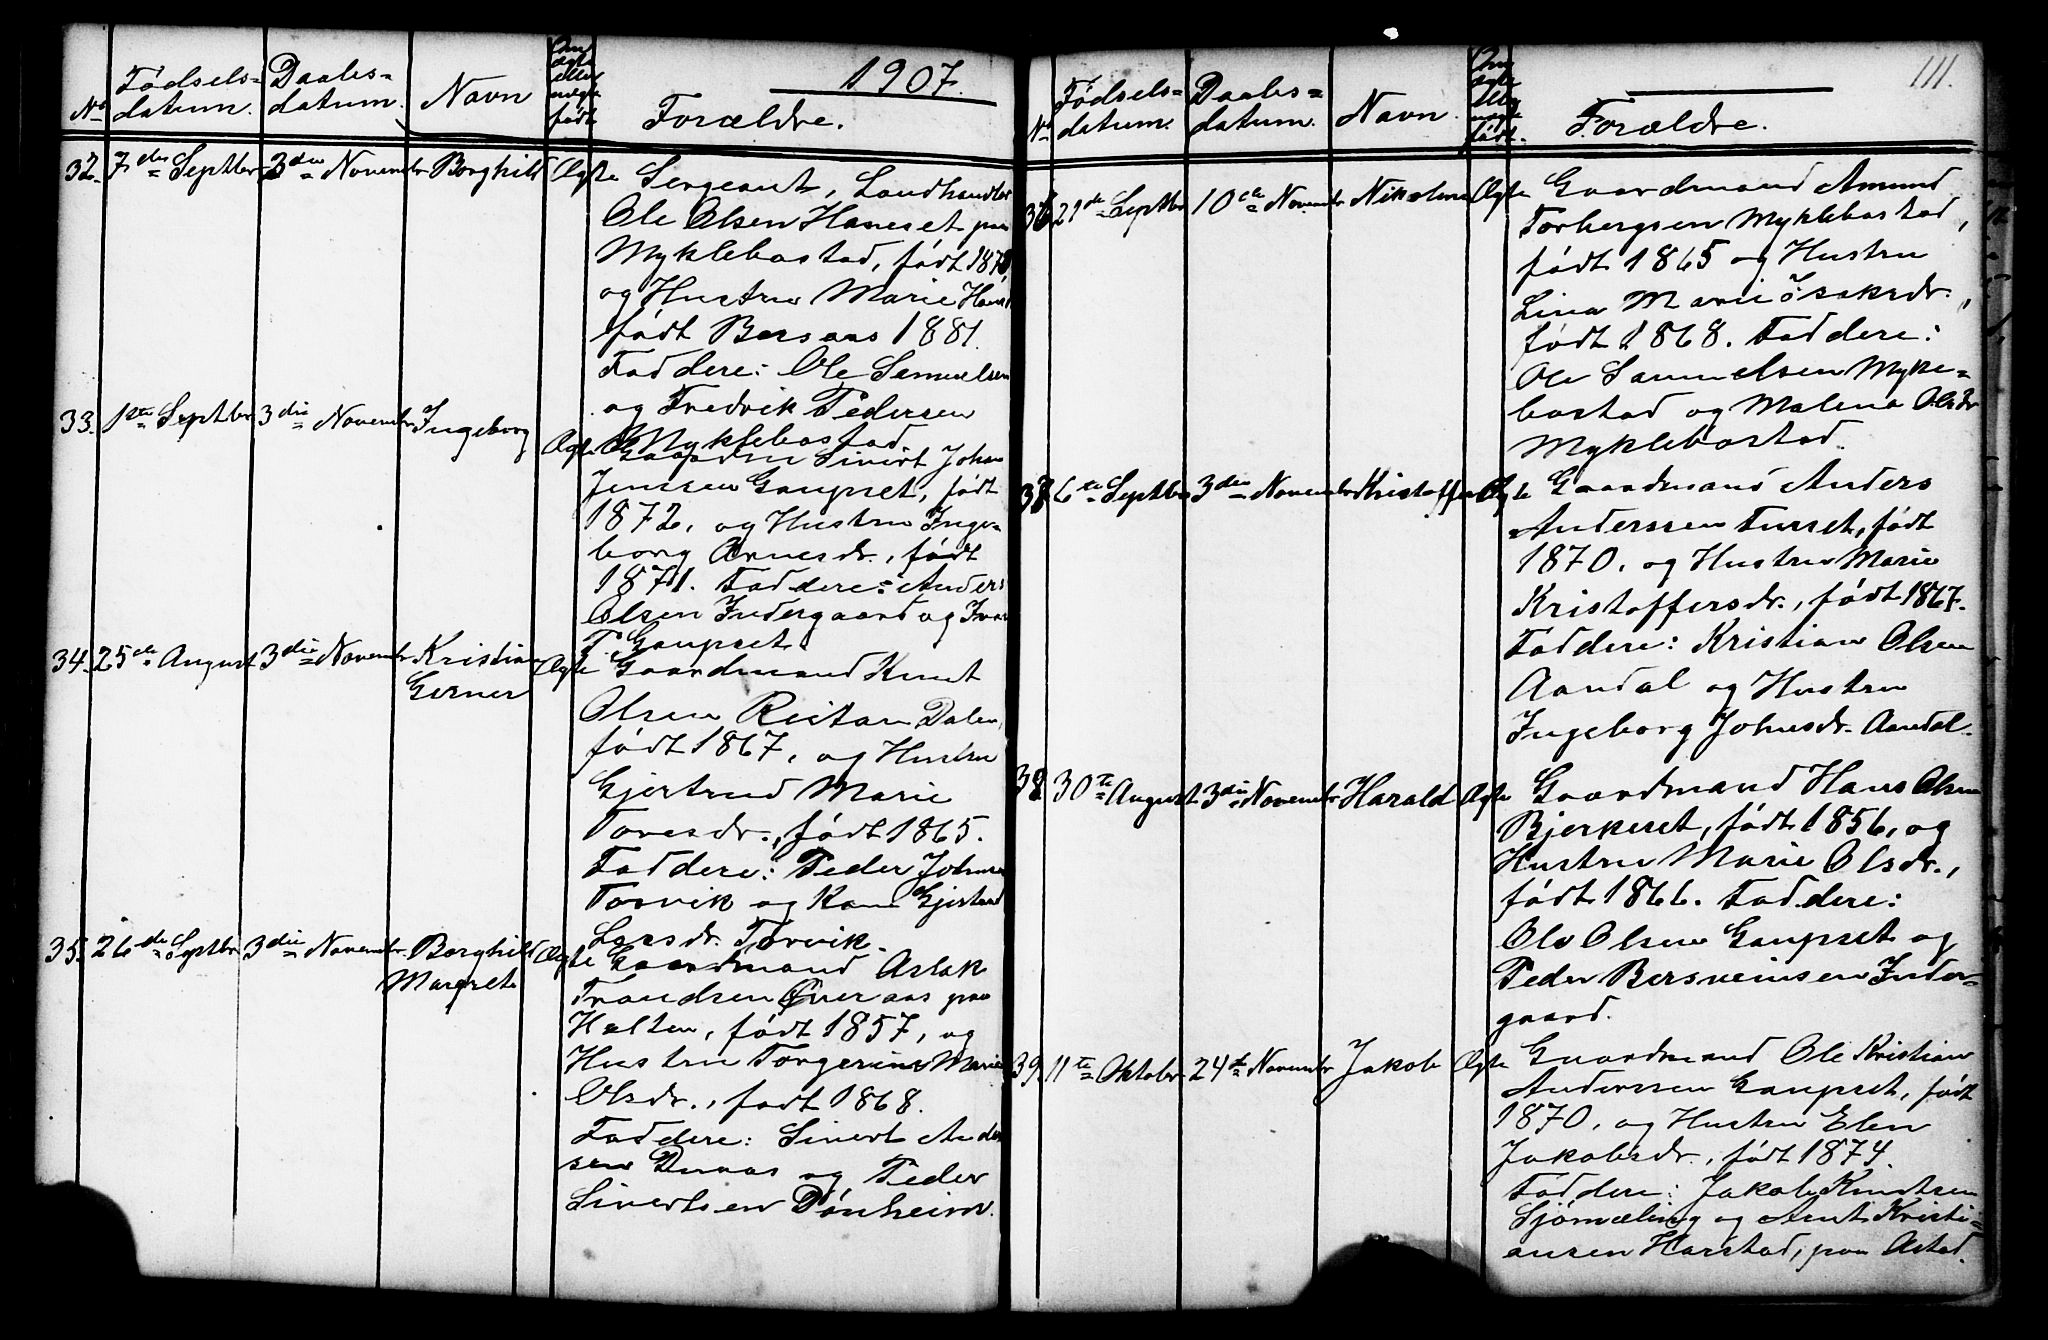 1907.
No Fødsels=
datum.
Daabs=
datum.
Navn
Om
ægte
eller
uægte
født.
Forældre.
32. 7de Septbr 3die Novembr Borghild Ægte Sergeant, Landhandler
Ole Olsen Haneset paa
Myklebostad, født 1870,
og Hustru Marie
født Bersaas 1881.
Faddere: Ole Samuelsen
og Fredrik Pedersen
Myklebostad.
33. 1ste Septbr 3die Novembr Ingeborg Ægte Gaardm Sivert Johan
Jenssen Gaupset, født
1872, og Hustru Inge=
borg Arnesdr., født
1871. Faddere: Anders
Olsen Indergaard og Ivar
P. Gaupset.
34. 25de August 3die Novembr Kristian Ægte Gaardmand Knut
Gerner
Olsen Reitan Dalen,
født 1867, og Hustru
Gjertrud Marie
Toresdr., født 1865.
Faddere: Peder Johnsen
Torvik og Kone Gjertrud
Larsdr. Torvik.
35. 26de Septbr 3die Novembr Borghild Ægte Gaardmand Aslak
Margrete
Trondsen Øveraas paa
Holten, født 1857, og
Hustru Torgerine Marie
Olsdr., født 1868.
Faddere: Sivert Ander
sen Duaas og Peder
Sivertsen Dønheim.
111.
No Fødsels=
datum.
Daabs=
datum.
Navn.
Om
ægte
eller
uægte
født.
Forældre.
36. 21de Septbr 10de Novembr Nikoline Ægte Gaardmand Amund
Torbergsen Myklebostad,
født 1865 og Hustru
Lina Marie Isaksdr.,
født 1868. Faddere:
Ole Samuelsen Mykle=
bostad og Malena Olsdr
Myklebostad.
37. 6te Septbr 3die Novembr Kristoffer Ægte Gaardmand Anders
Anderssen Fursset, født
1870, og Hustru Marie
Kristoffersdr., født 1867.
Faddere: Kristian Olsen
Aandal og Hustru
Ingeborg Johnsdr. Aandal.
38. 30te August 3die Novembr Harald Ægte Gaardmand Hans Olsen
Bjerkeset, født 1856, og
Hustru Marie Olsdr.,
født 1866. Faddere:
Ole Olsen Gaupset og
Peder Bersveinsen Inder=
gaard.
39. 11te Oktober 24de Novembr Jakob Ægte Gaardmand Ole Kristian
Anderssen Gaupset, født
1870, og Hustru Elen
Jakobsdr., født 1874.
Faddere: Jakob Knutsen
Sjømæling og Arnt Kristi=
ansen Harstad, paa Astad.